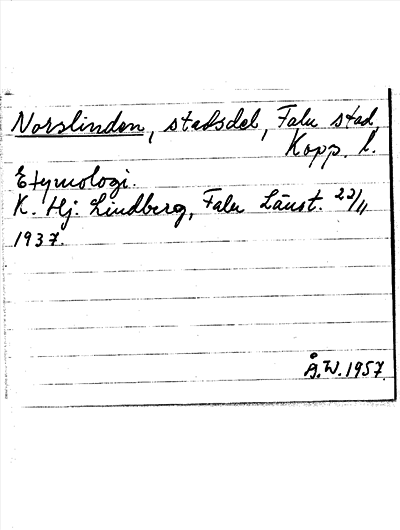 Norslinden, stadsdel, Falu stad,
Kopp. l.
Etymologi.
K. Hj. Lindberg, Falu Länst. 22/11
1937.
Å.W. 1957.